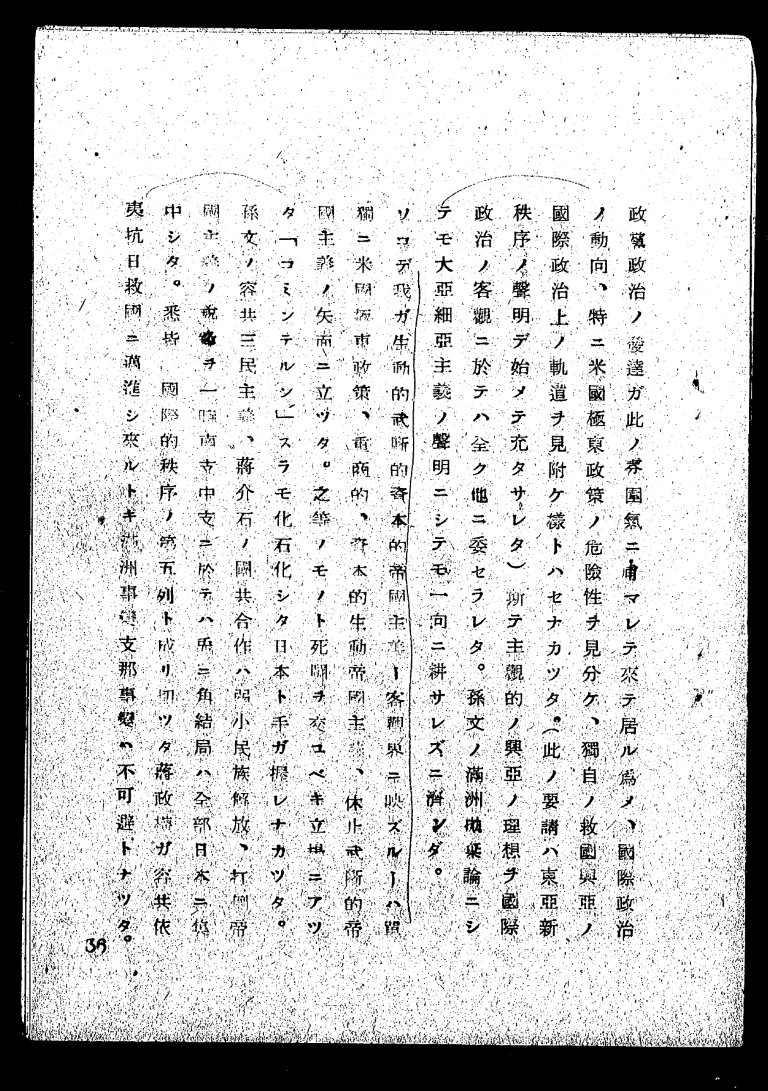 政黨政治ノ發達ガ此ノ雰圍氣ニ阻マレテ來テ居ル爲メ、國際政治
ノ動向、特ニ米國極東政策ノ危險性ヲ見分ケ、獨自ノ救國興亞ノ
國際政治上ノ軌道ヲ見附ケ樣トハセナカツタ。(此ノ要請ハ東亞新
秩序ノ聲明デ始メテ充タサレタ)斯テ主觀的ノ興亞ノ理想ヲ國際
政治ノ客觀ニ於テハ全ク他ニ委セラレタ。孫文ノ滿洲抛棄論ニシ
テモ大亞細亞主義ノ聲明ニシテモ一向ニ耕サレズニ濟ンダ。
ソコデ我ガ生動的武斷的資本的帝國主義ー客觀界ニ映ズルーハ單
獨ニ米國極東政策、重商的、資本的生動帝國主義、休止武斷的帝
國主義ノ矢面ニ立ツタ。之等ノモノト死鬪ヲ交ユベキ立場ニアツ
タ「コミンテルン」スラモ化石化シタ日本ト手ガ握レナカツタ。
孫文ノ容共三民主義、蔣介石ノ國共合作ハ弱小民族解放、打倒帝
國主義ノ鋭鋒ヲ一時南支中支ニ於テハ兎ニ角結局ハ全部日本ニ集
中シタ。悉皆 國際的秩序ノ第五列ト成リ切ツタ蔣政權ガ容共依
夷抗日救國ニ邁進シ來ルトキ滿洲事變支那事變ハ不可避トナツタ。
36